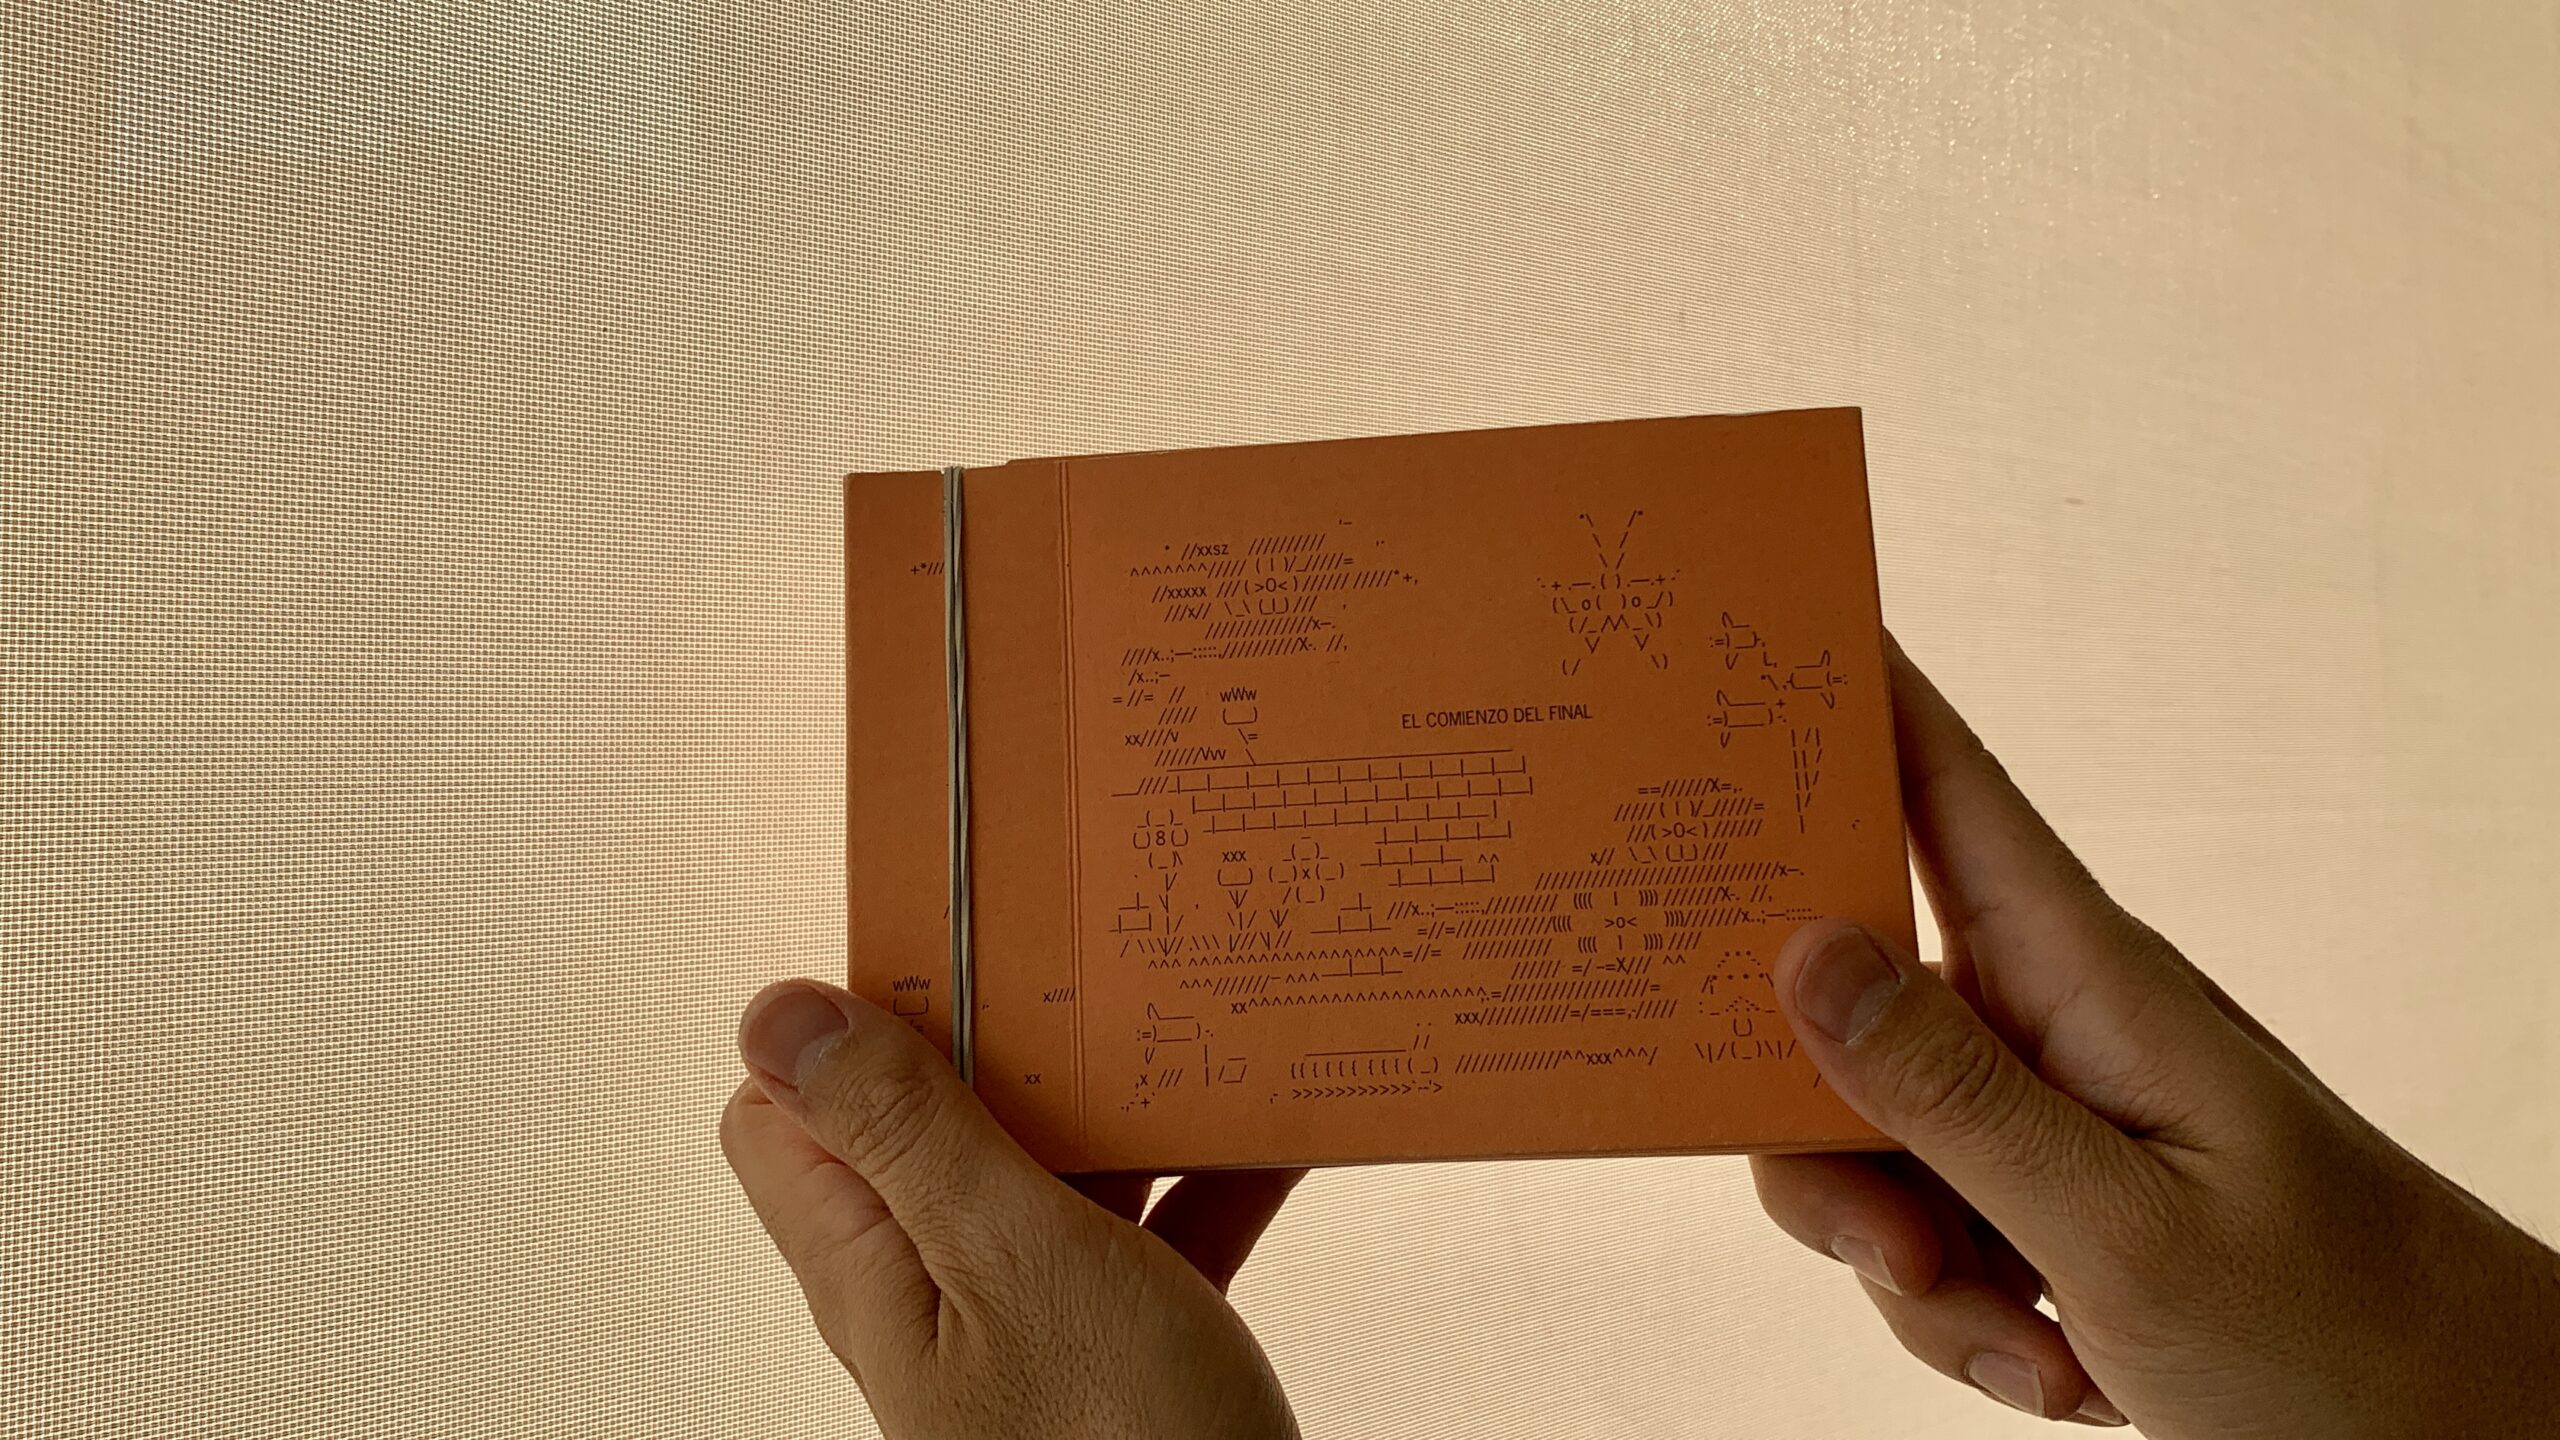 EL COMIENZO DEL FINAL